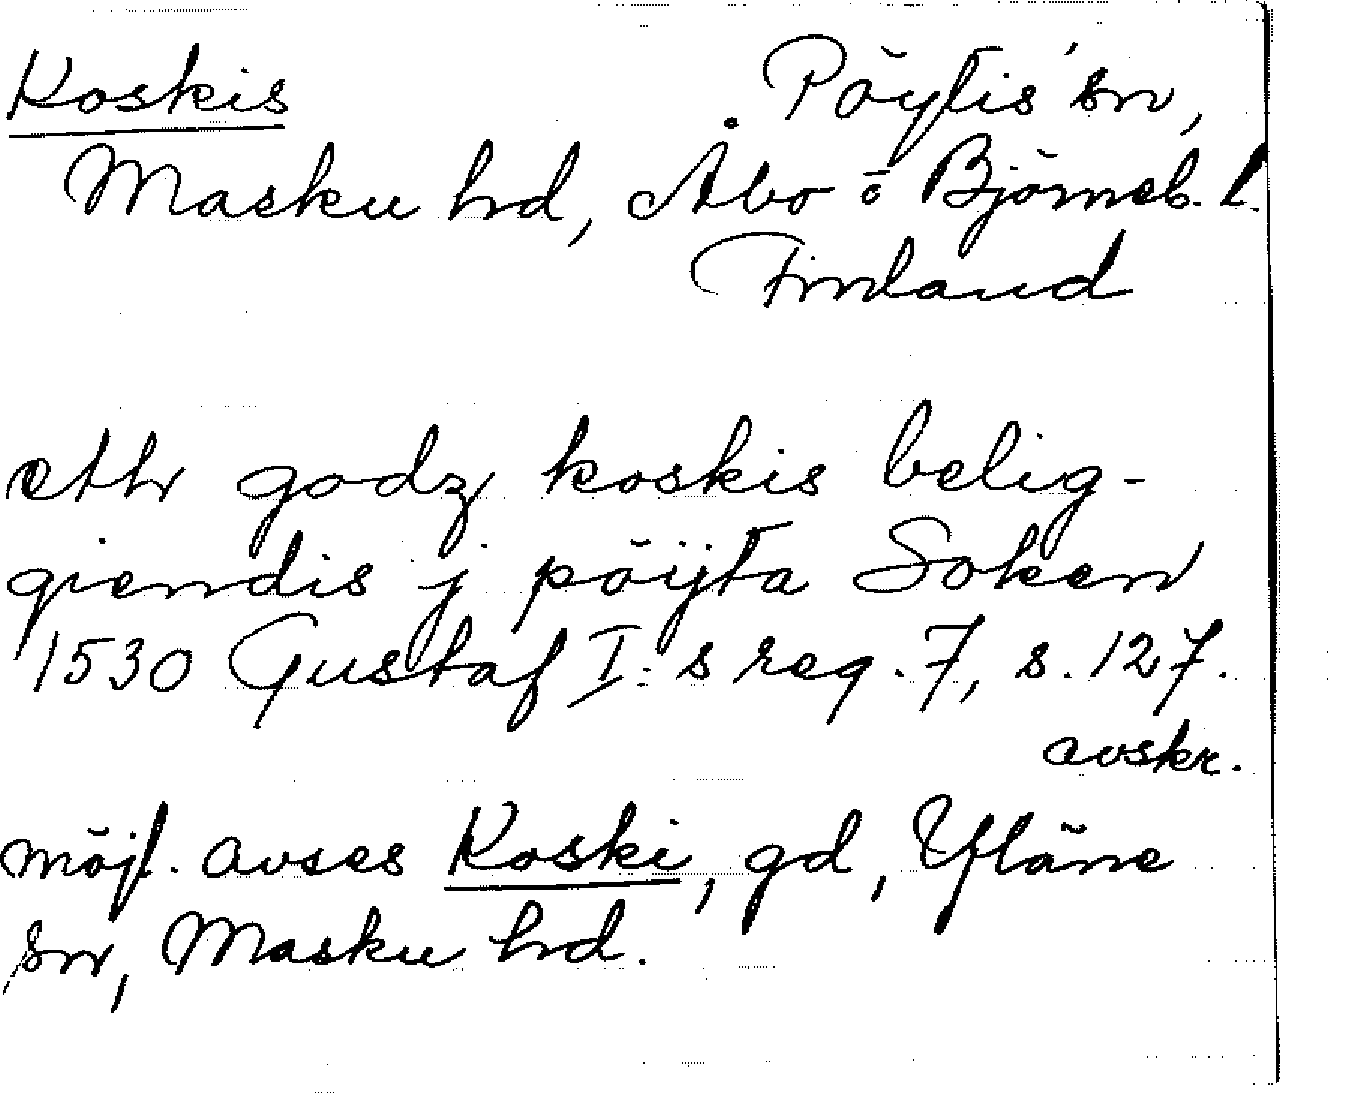 Koskis Pöytis sn,
Masku hd, Åbo o Björneb. l.
Finland
ett godz koskis belig-
giendis j pöÿta Soken
1530 Gustaf I:s reg. 7, s. 127.
avskr.
möjl. avses Koski, gd, Yläne
sn, Masku hd.